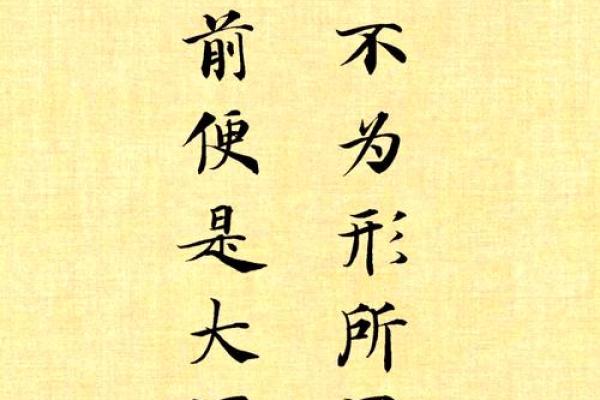 不为形所
前便是大